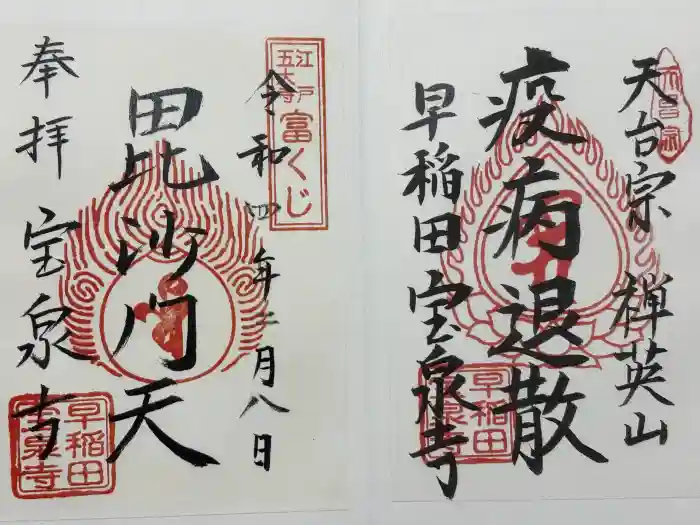 天台宗 禅英山
疫病退散
早稲田 宝泉寺
早稲田
宝泉寺
天台宗
江戸
五大寺
富くじ
令和四年二月八日
毘沙門天
奉拝 宝泉寺
早稲田
宝泉寺